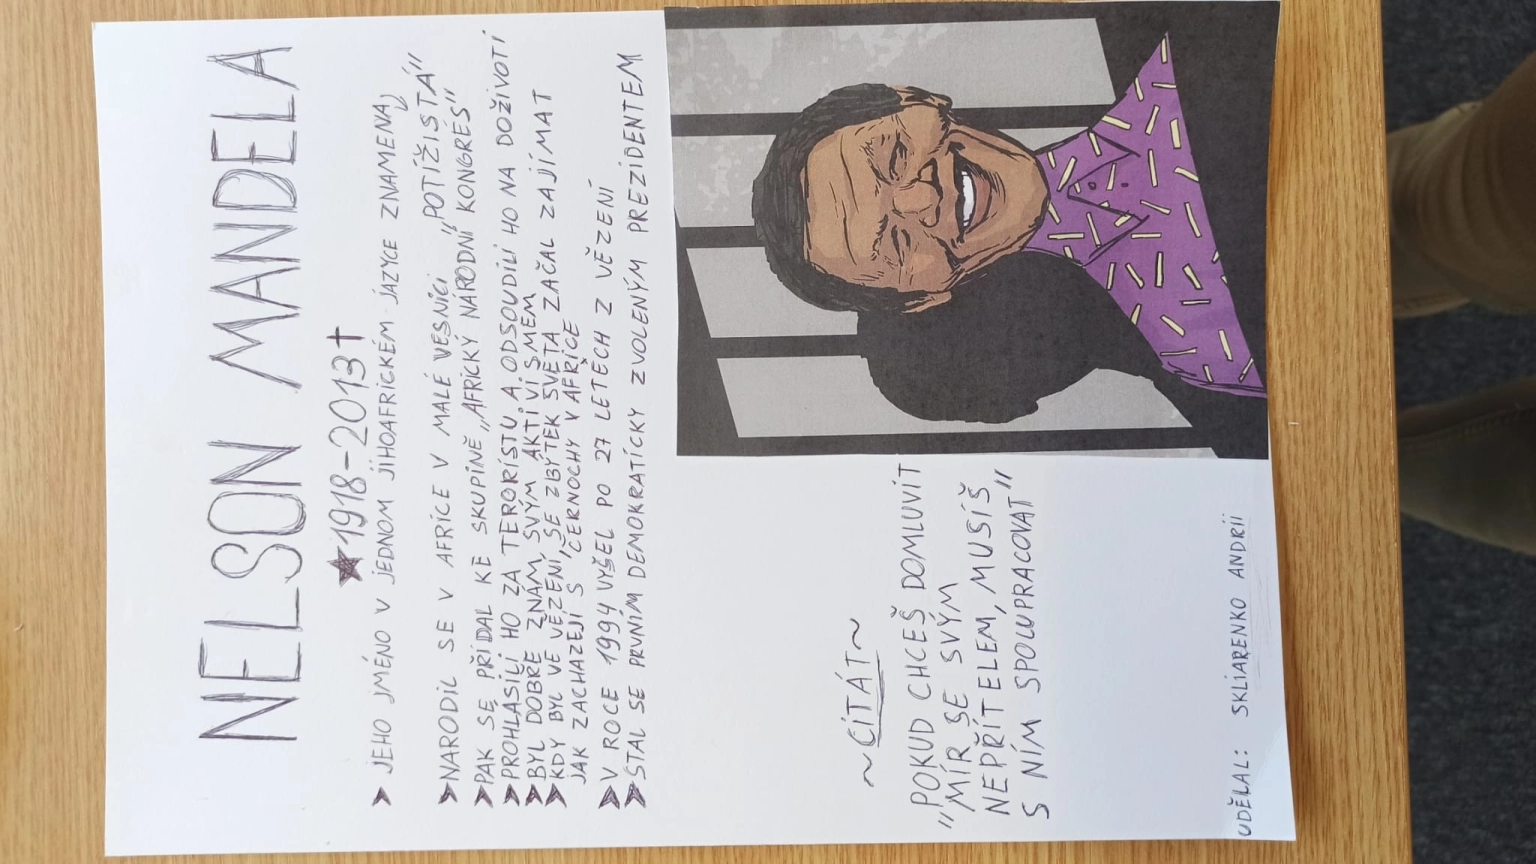 NELSON MANDELA
★1918-2013†
➤ JEHO JMÉNO V JEDNOM JIHOAFRICKÉM JAZYCE ZNAMENÁ
„POTÍŽISTA“
➤ NARODIL SE V AFRICE V MALÉ VESNICI
➤ PAK SE PŘIDAL KE SKUPINĚ „AFRICKÝ NÁRODNÍ KONGRES“
➤ PROHLÁSILI HO ZA TERORISTU A ODSOUDILI HO NA DOŽIVOTÍ
➤ BYL DOBŘE ZNÁM, SVÝM AKTIVISMEM
➤ KDY BYL VE VĚZENÍ, SE ZBYTEK SVĚTA ZAČAL ZAJÍMAT
JAK ZACHAZEJÍ S ČERNOCHY V AFRICE
➤ V ROCE 1994 VYŠEL PO 27 LETECH Z VĚZENÍ
➤ STAL SE PRVNÍM DEMOKRATICKY ZVOLENÝM PREZIDENTEM
~CITÁT~
"POKUD CHCEŠ DOMLUVIT
MÍR SE SVÝM
NEPŘÍTELEM, MUSÍŠ
S NÍM SPOLUPRACOVAT"
UDĚLAL: SKLIARENKO ANDRII